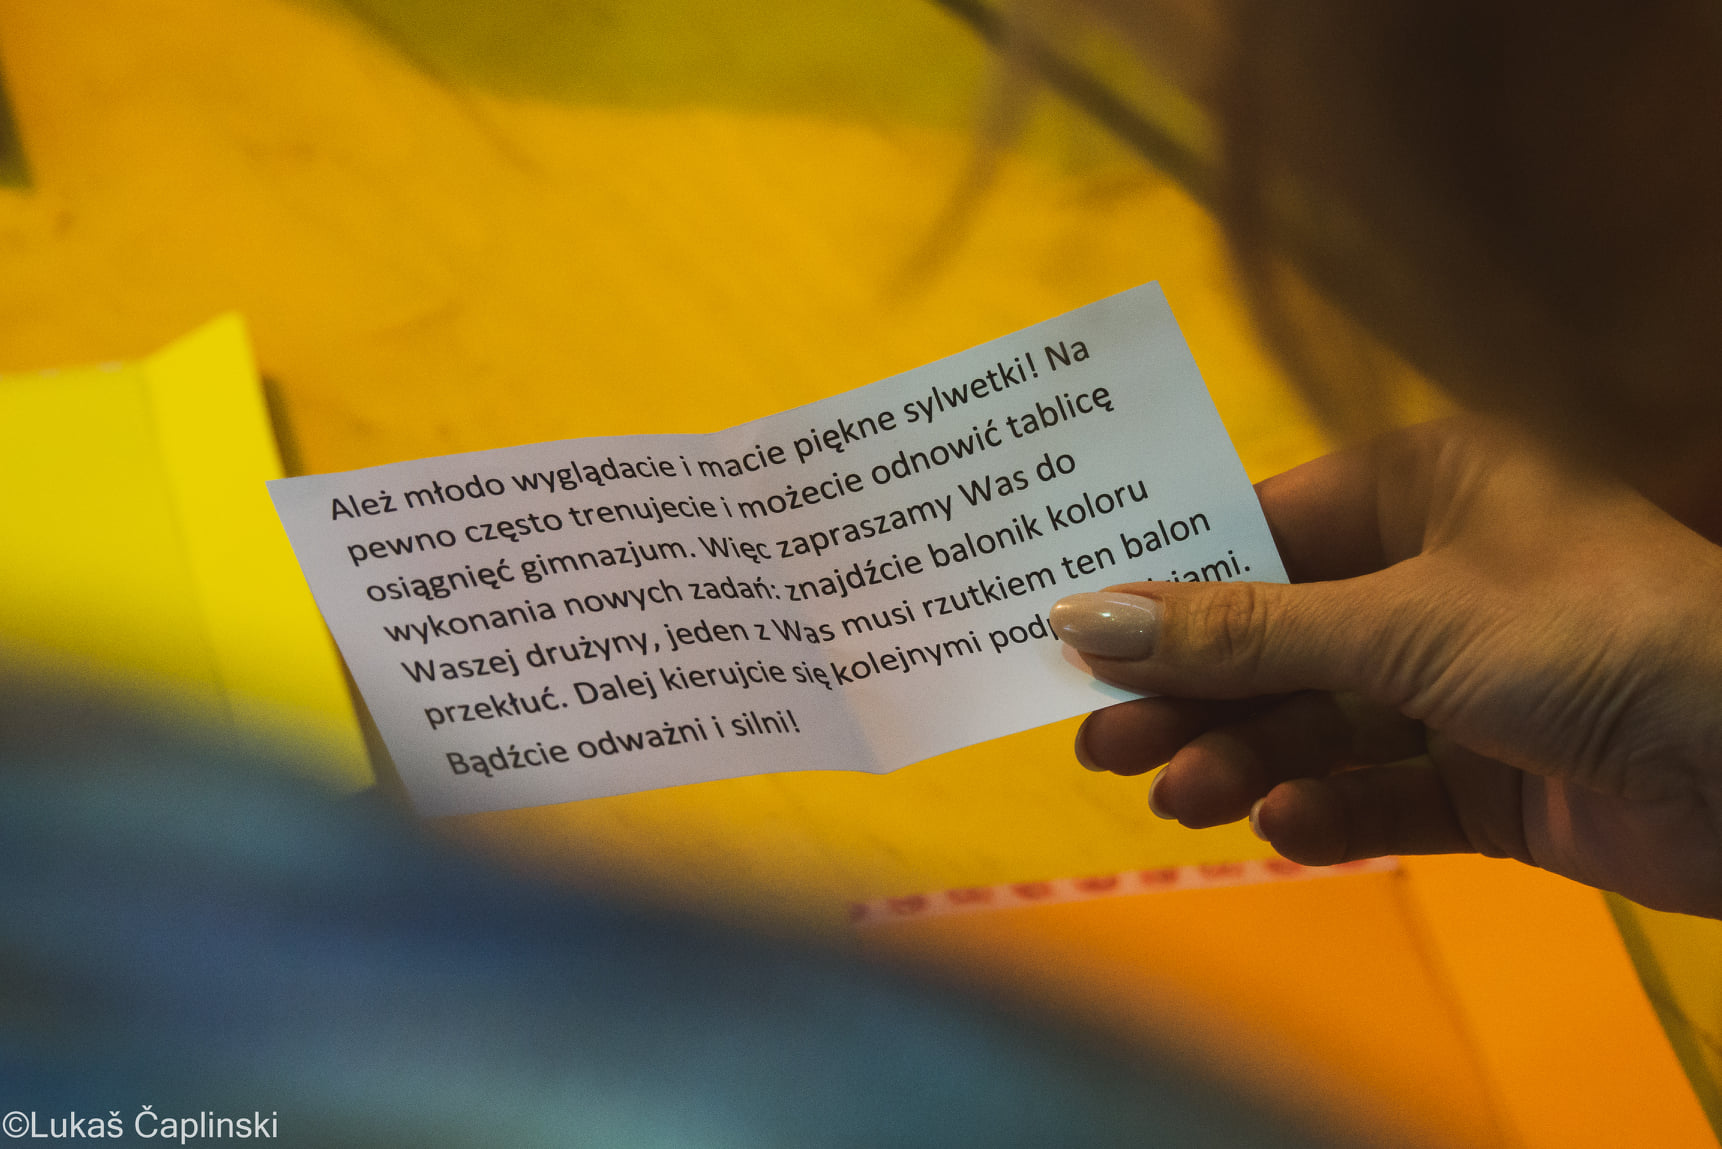 Ależ młodo wyglądacie i macie piękne sylwetki! Na
pewno często trenujecie i możecie odnowić tablicę
osiągnięć gimnazjum. Więc zapraszamy Was do
wykonania nowych zadań: znajdźcie balonik koloru
Waszej drużyny, jeden z Was musi rzutkiem ten balon
przekłuć. Dalej kierujcie się kolejnymi
Bądźcie odważni i silni!
©Lukaš Čaplinski